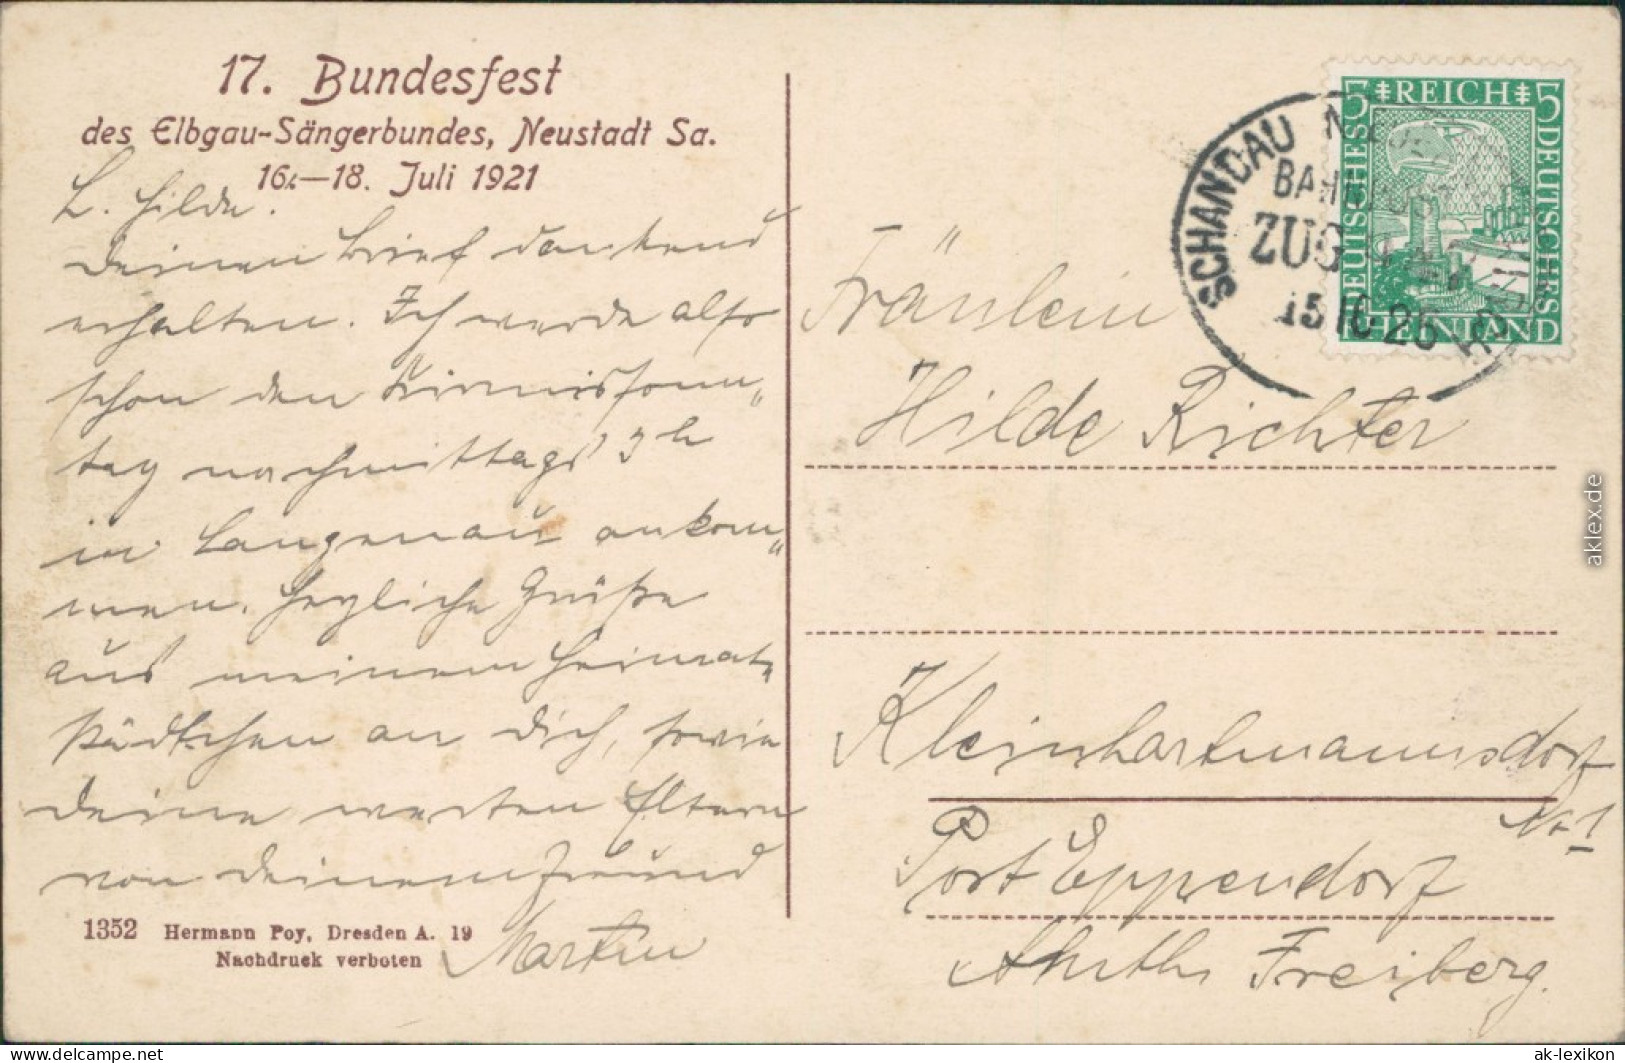 17. Bundesfest
des Elbgau-Sängerbundes, Neustadt Sa.
16.—18. Juli 1921
L. Hilde.
Deinen Brief dankend
erhalten. Ich werde also
schon den Kirmissonn„
tag nachmittags 3 h
in Langenau ankom„
men. Herzliche Grüße
aus meinem Heimat„
städtchen an Dich, sowie
Deine werten Eltern
von Deinem Freund
Martin
1352 Hermann Poy, Dresden A. 19
Nachdruck verboten
5 REICH 5
DEUTSCHES
DEUTSCHES
RHEINLAND
SCHANDAU
BAHNPOST
ZUG
15 10 26
Fräulein
Hilde Richter
Kleinhartmannsdorf
Nr 1
Post Eppendorf
Amtsh. Freiberg.
aklex.de
delcampe.net
ak-lexikon